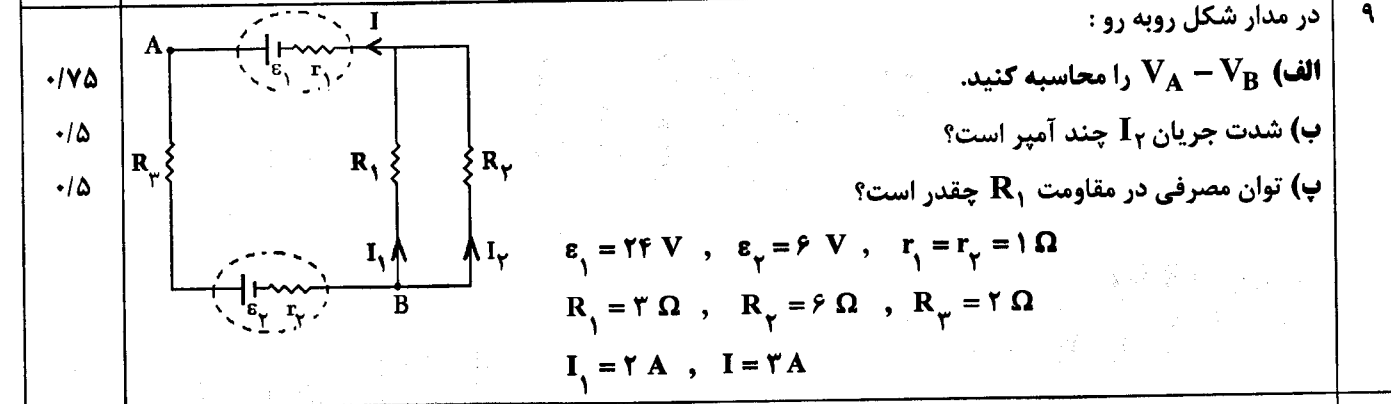 ۹
در مدار شکل روبه رو :
الف) V_A – V_B را محاسبه کنید.
۰/۷۵
ب) شدت جریان I_۲ چند آمپر است؟
۰/۵
پ) توان مصرفی در مقاومت R_۱ چقدر است؟
۰/۵
ε_۱ = ۲۴ V , ε_۲ = ۶ V , r_۱ = r_۲ = ۱ Ω
R_۱ = ۳ Ω , R_۲ = ۶ Ω , R_۳ = ۲ Ω
I_۱ = ۲ A , I = ۳ A
I
A
ε_۱ r_۱
R_۳ R_۱ R_۲
I_۱ I_۲
ε_۲ r_۲
B